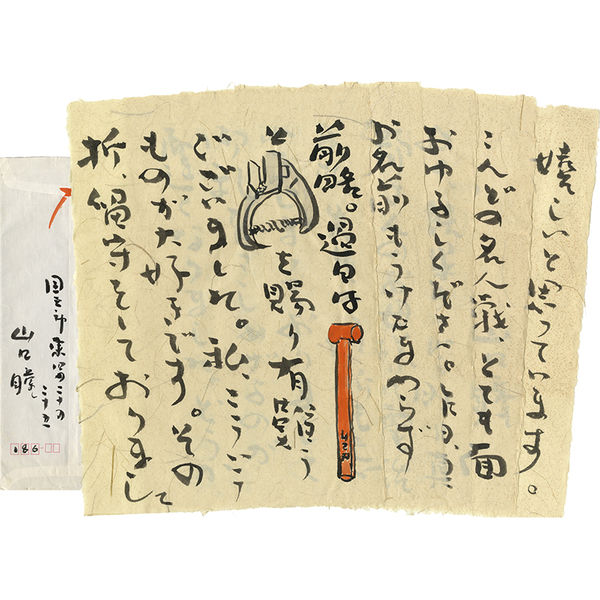 前略。過日は
と を賜り有難う
ございました。私、こういう
ものが大好きです。その
折、留守をしておりまして
お名前もうけたまわらず
おゆるしください。
こんどの名人戦、とても面
嬉しいと思っています。
国立市東
山口瞳
186